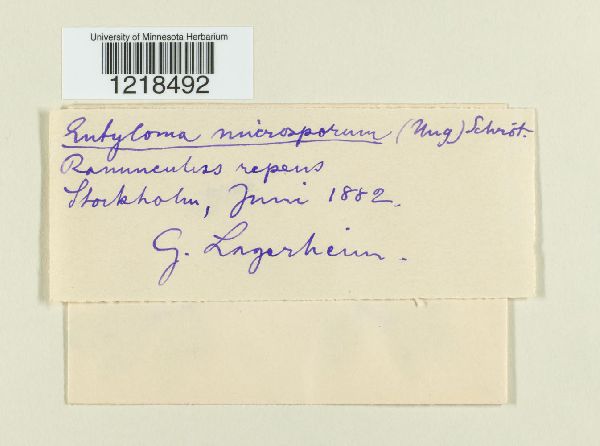 University of Minnesota Herbarium
1218492
Entyloma microsporum (Ung.) Schröt.
Ranunculus repens
Stockholm, Juni 1882.
G. Lagerheim.